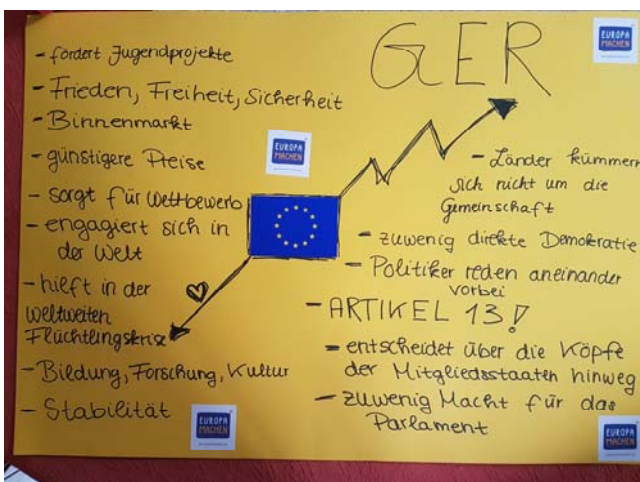 GER
- fördert Jugendprojekte
- Frieden, Freiheit, Sicherheit
- Binnenmarkt
- günstigere Preise
- sorgt für Wettbewerb
- engagiert sich in
der Welt
- hilft in der
weltweiten
Flüchtlingskrise
- Bildung, Forschung, Kultur
- Stabilität
- Länder kümmern
sich nicht um die
Gemeinschaft
- zuwenig direkte Demokratie
- Politiker reden aneinander
vorbei
- ARTIKEL 13!
- entscheidet über die Köpfe
der Mitgliedsstaaten hinweg
- zuwenig Macht für das
Parlament
EUROPA
MACHEN
EUROPA
MACHEN
EUROPA
MACHEN
EUROPA
MACHEN